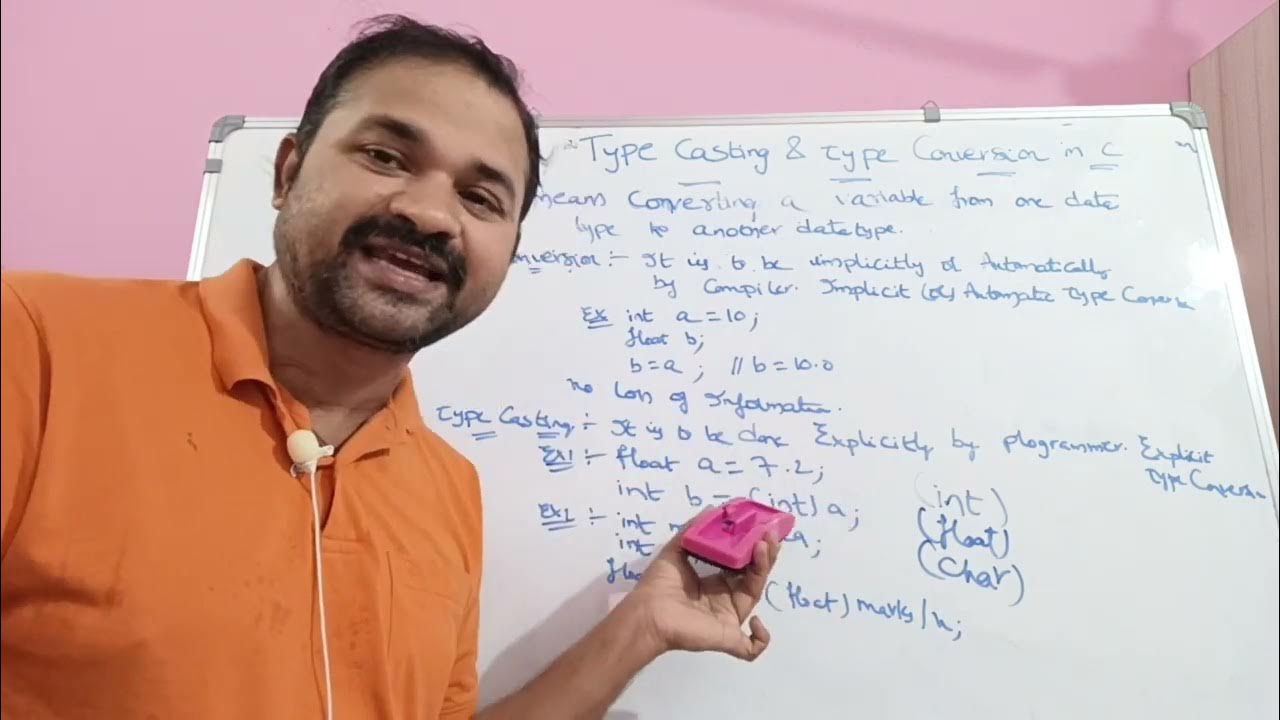 Type Casting & Type Conversion in C
means Converting a variable from one data
type to another datatype.
:- It is to be implicitly or Automatically
by Compiler. Implicit (or) Automatic Type
Ex int a = 10;
float b;
b = a ; // b = 10.0
no Loss of Information.
Type Casting :- It is to be done Explicitly by programmer. Explicit
Type
Ex1 :- float a = 7.2;
int b = (int) a ;
(int)
int
(float)
int
(char)
(float) marks / n ;